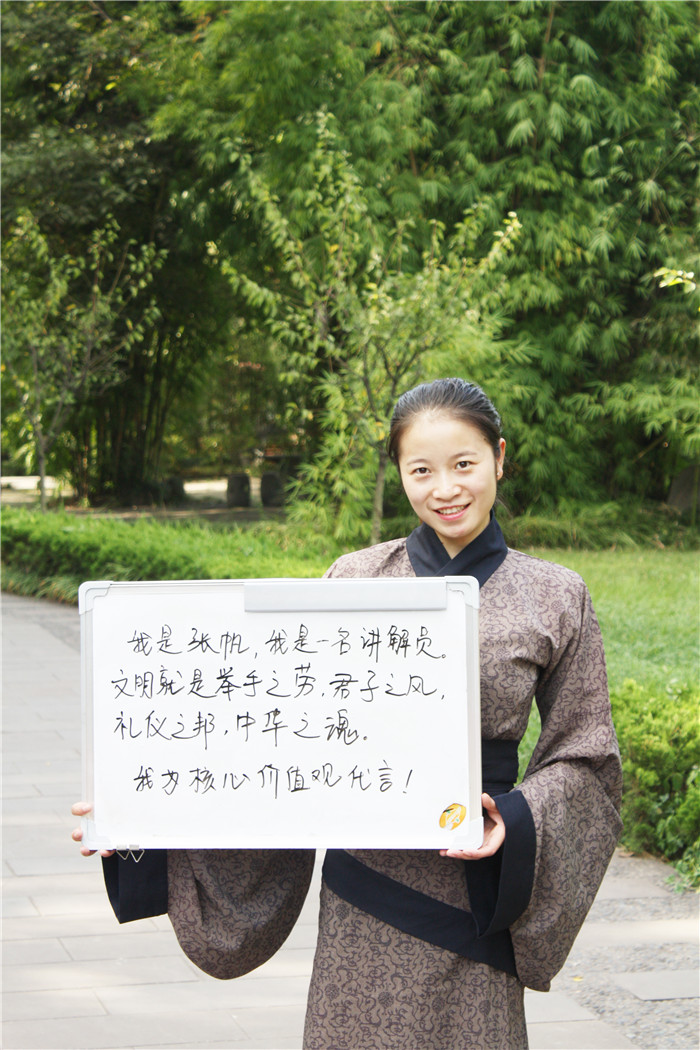 我是张帆，我是一名讲解员。
文明就是举手之劳，君子之风，
礼仪之邦，中华之魂。
我为核心价值观代言！